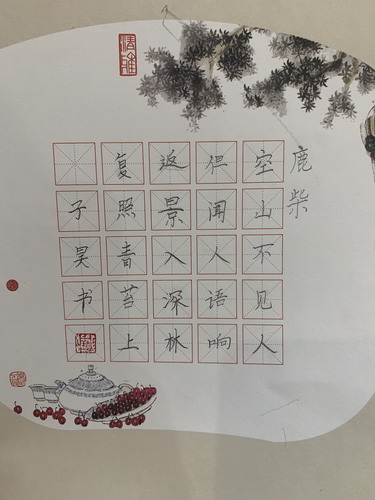 清雅
鹿柴
空山不见人
但闻人语响
返景入深林
复照青苔上
子昊书